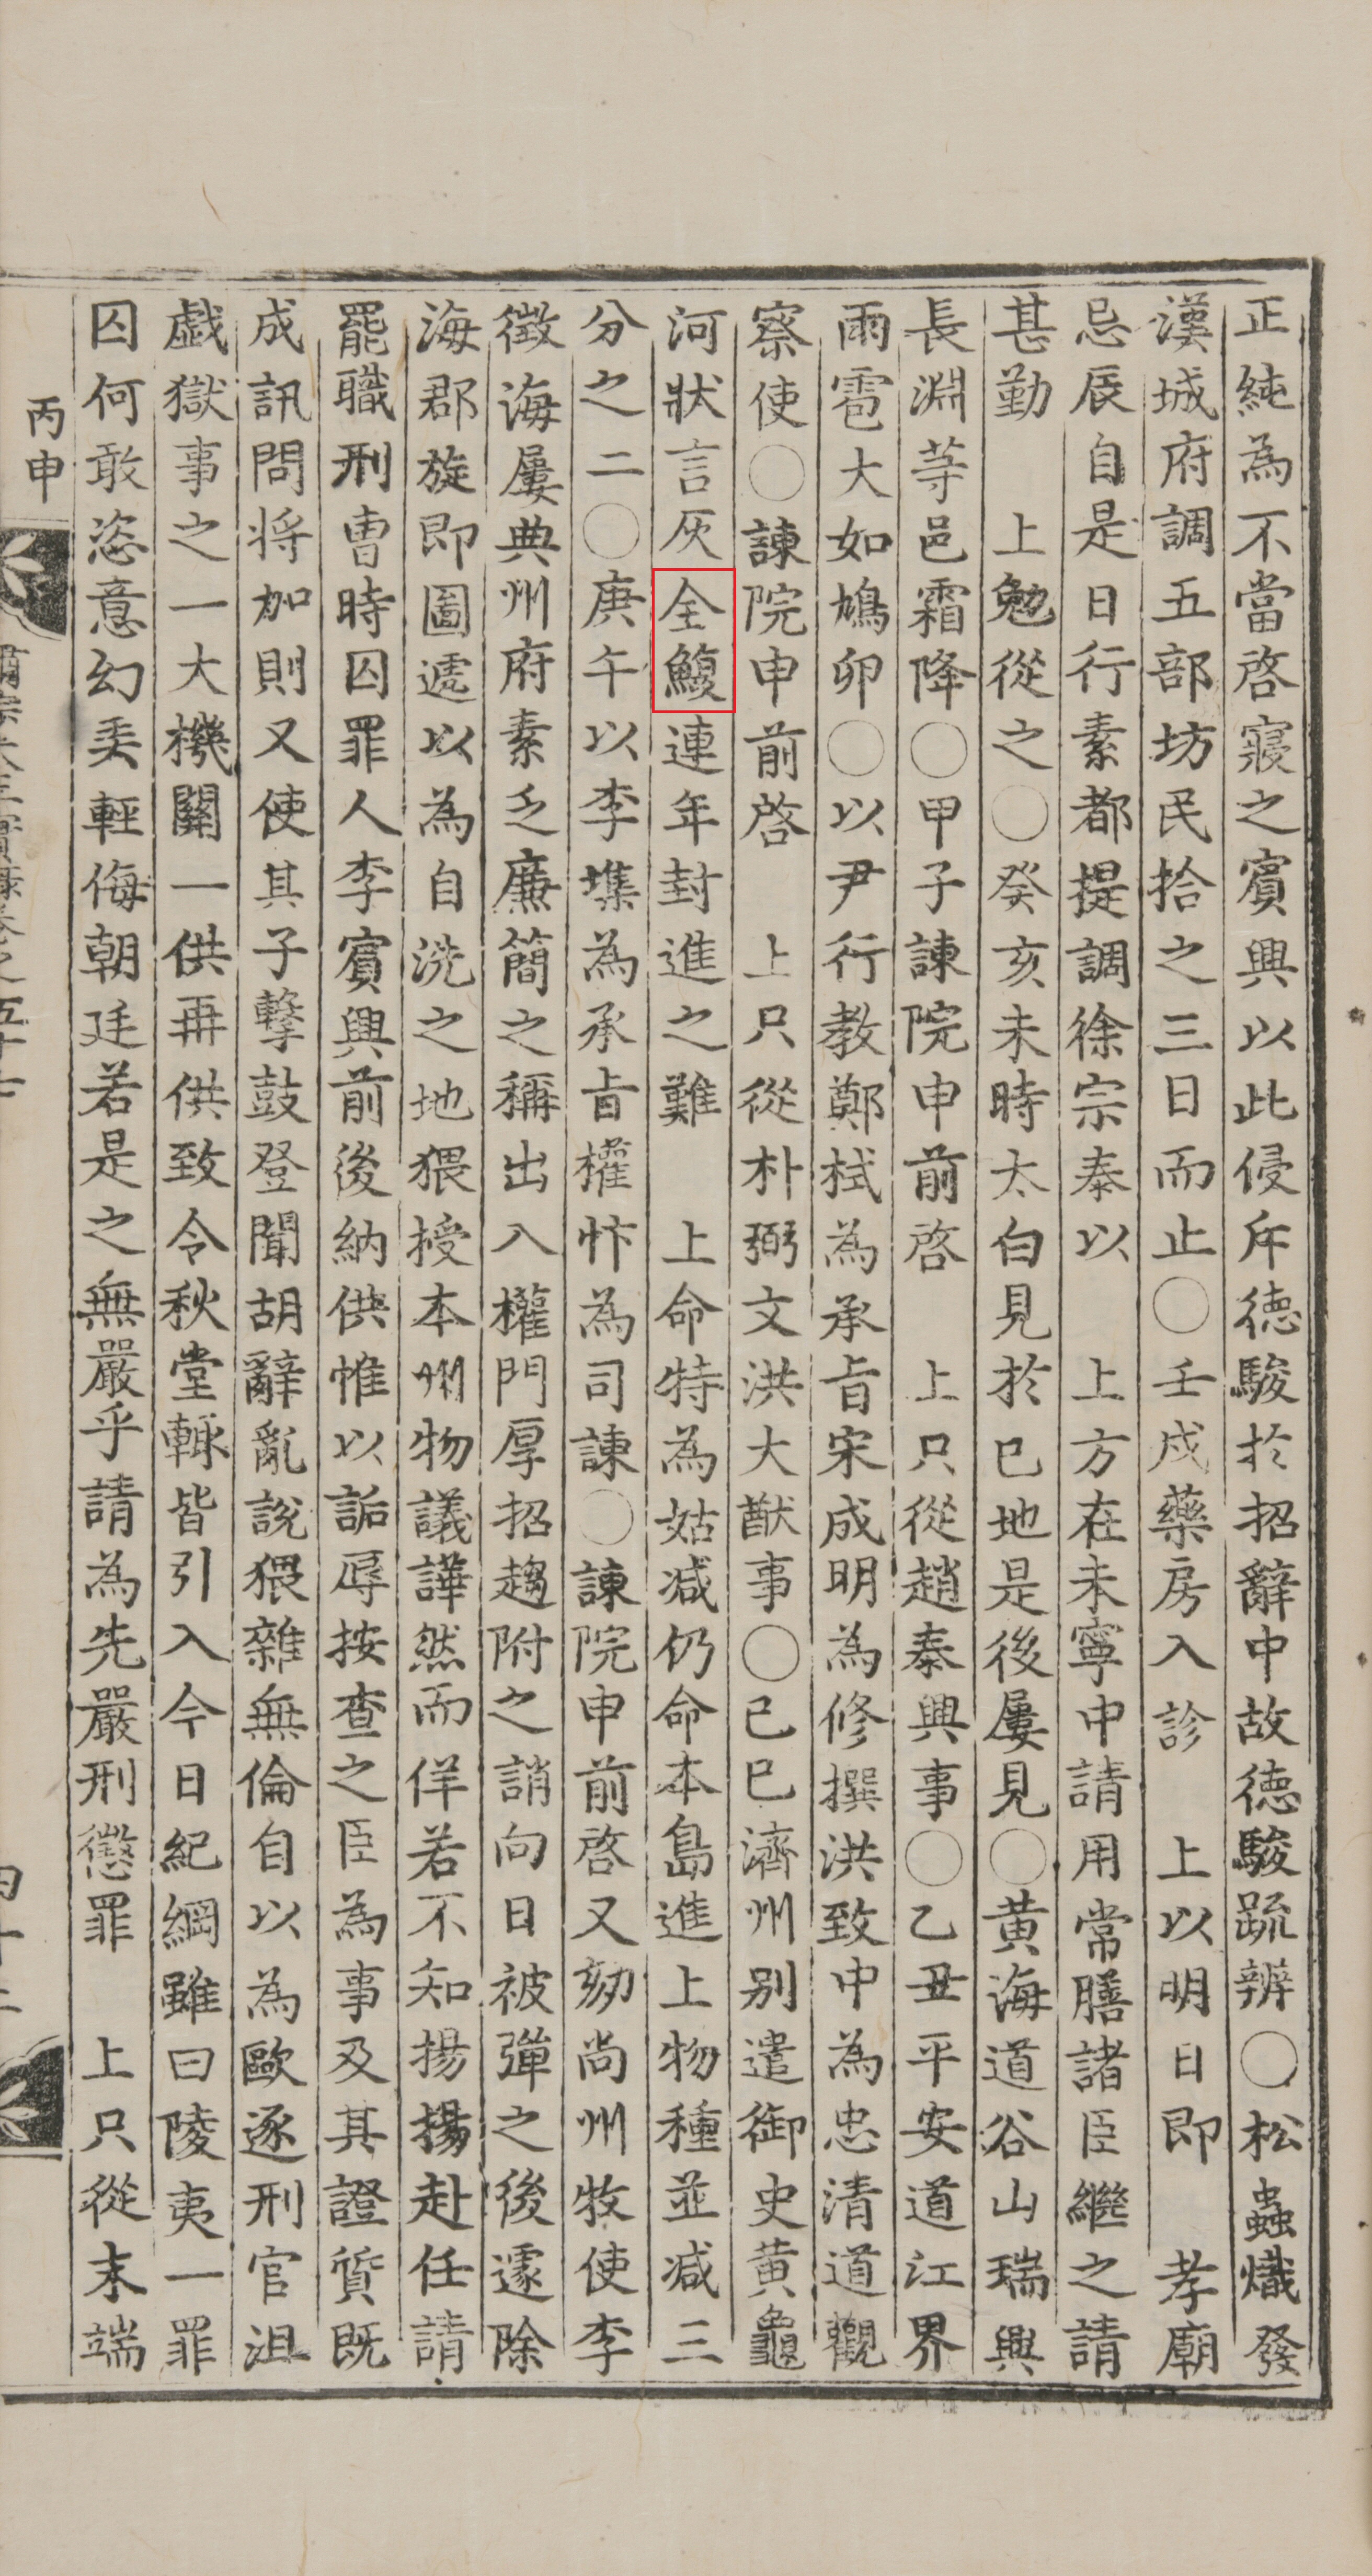 正純為不當啓寢之賓興以此侵斥德駿於招辭中故德駿䟽辨○松蟲熾發
漢城府調五部坊民拾之三日而止○壬戌藥房入診　上以明日即　孝廟
忌辰自是日行素都提調徐宗泰以　上方在未寧中請用常膳諸臣繼之請
甚勤　上勉從之○癸亥未時太白見於巳地是後屢見○黃海道谷山瑞興
長淵等邑霜降○甲子諫院申前啓　上只從趙泰興事○乙丑平安道江界
雨雹大如鳩卵○以尹行教鄭栻為承旨宋成明為修撰洪致中為忠清道觀
察使○諫院申前啓　上只從朴弼文洪大猷事○己巳濟州別遣御史黃龜
河狀言灰全鰒連年封進之難　上命特為姑減仍命本島進上物種並減三
分之二○庚午以李㙫為承旨權忭為司諫○諫院申前啓又劾尚州牧使李
徵海屢典州府素乏廉簡之稱出入權門厚招趨附之誚向日被彈之後遽除
海郡旋即圖遞以為自洗之地猥授本州物議譁然而佯若不知揚揚赴任請
罷職刑曹時囚罪人李賓興前後納供惟以詬辱按查之臣為事及其證質既
成訊問將加則又使其子擊鼓登聞胡辭亂說猥雜無倫自以為歐逐刑官沮
戱獄事之一大機關一供再供致令秋堂輒皆引入今日紀綱雖曰陵夷一罪
囚何敢恣意幻弄輕侮朝廷若是之無嚴乎請為先嚴刑懲罪　上只從末端
丙申